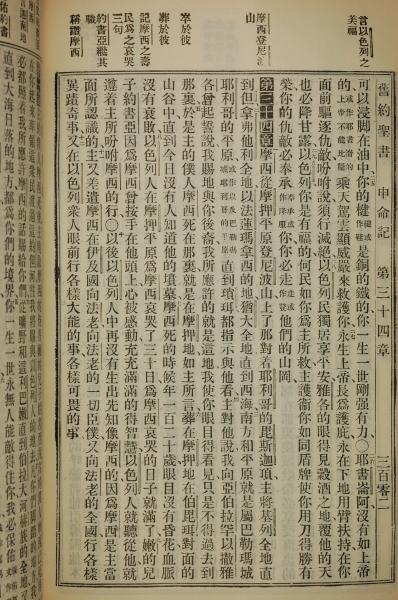 舊約聖書 申命記 第三十四章 三百零二
言以色列之
美福
可以浸脚在油中你的楗是銅的鐵的你一生一世剛強有力〇耶書崙阿沒有如上帝
的乘天駕雲顯威嚴來救護你永生上帝長爲護庇永在下地用臂扶持在你
面前驅逐仇敵吩咐說須行滅絕以色列民獨居享平安雅各的眼得見穀酒之地覆他的天
也必降甘露以色列你是有福的何民如你爲主所救主護衞你如同盾牌使你用刀得勝有
榮你的仇敵必奉承你你必走他們的山岡
摩西登尼波
山
第三十四章摩西從摩押平原登尼波山上了那對着耶利哥的毘斯迦項主將基列全地直
到但拿弗他利全地以法蓮瑪拿西的地猶大全地直到西海南方和平原就是屬巴勒瑪城
耶利哥的平原直到瑣珥都指示與他看主對他說我向亞伯拉罕以撒雅
各曾起誓說我賜地與你後裔我所應許的就是這地我使你眼目得看見只是不得過去到
卒於彼
葬於彼
那裏於是主的僕人摩西死在那裏就是在摩押地如主所言葬在摩押地在伯毘珥對面的
記摩西之壽
山谷中直到今日沒有人知道他的墳墓摩西死的時候年一百二十歲眼目沒有昏花血脈
民爲之哀哭
三旬
沒有衰敗以色列人在摩押平原爲摩西哀哭了三十日爲摩西哀哭的日子就滿了嫩的兒
約書亞繼其
職
子約書亞因爲摩西曾按手在他頭上心被感動充充滿滿的得智慧以色列人就聽從他就
稱讚摩西
遵着主所吩咐摩西的行〇以後以色列人中再沒有生出先知像摩西的因爲摩西是主當
面所認識的主又差遣摩西在伊及國向法老向法老的一切臣僕又向法老的全國行各樣
異蹟奇事又在以色列衆人眼前行各樣大能的事各樣可畏的事